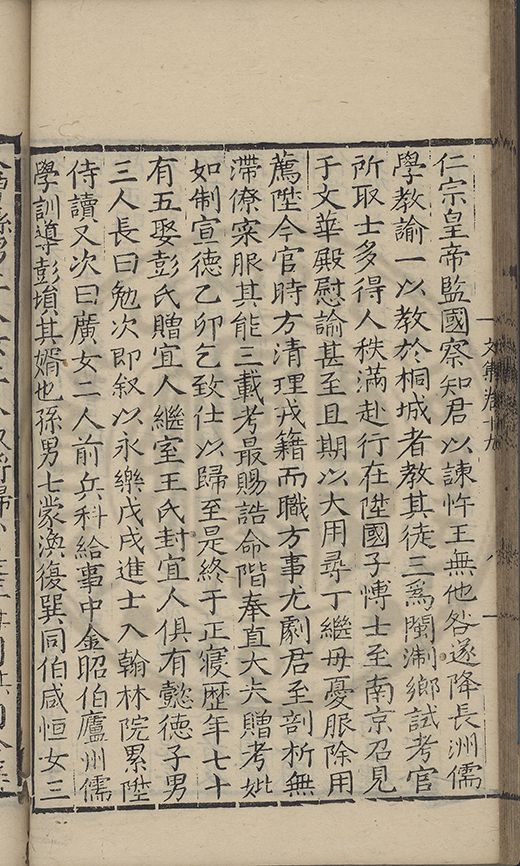 仁宗皇帝監國察知君以諫忤王無他咎遂降長洲儒
學教諭一以教於桐城者教其徒三爲閩淛鄉試考官
所取士多得人秩滿赴行在陞國子愽士至南京召見
于文華殿慰諭甚至且期以大用尋丁繼母憂服除用
薦陞今官時方清理戎籍而職方事尤劇君至剖析無
滯僚寀服其能三載考最賜誥命階奉直大夫贈考妣
如制宣德乙卯乞致仕以歸至是終于正寢歴年七十
有五娶彭氏贈宜人繼室王氏封宜人俱有懿德子男
三人長曰勉次即叙以永樂戊戌進士入翰林院累陞
侍讀又次曰廣女二人前兵科給事中金昭伯廬州儒
學訓導彭塤其婿也孫男七蒙渙復巽同伯咸恒女三
文集卷十九
八